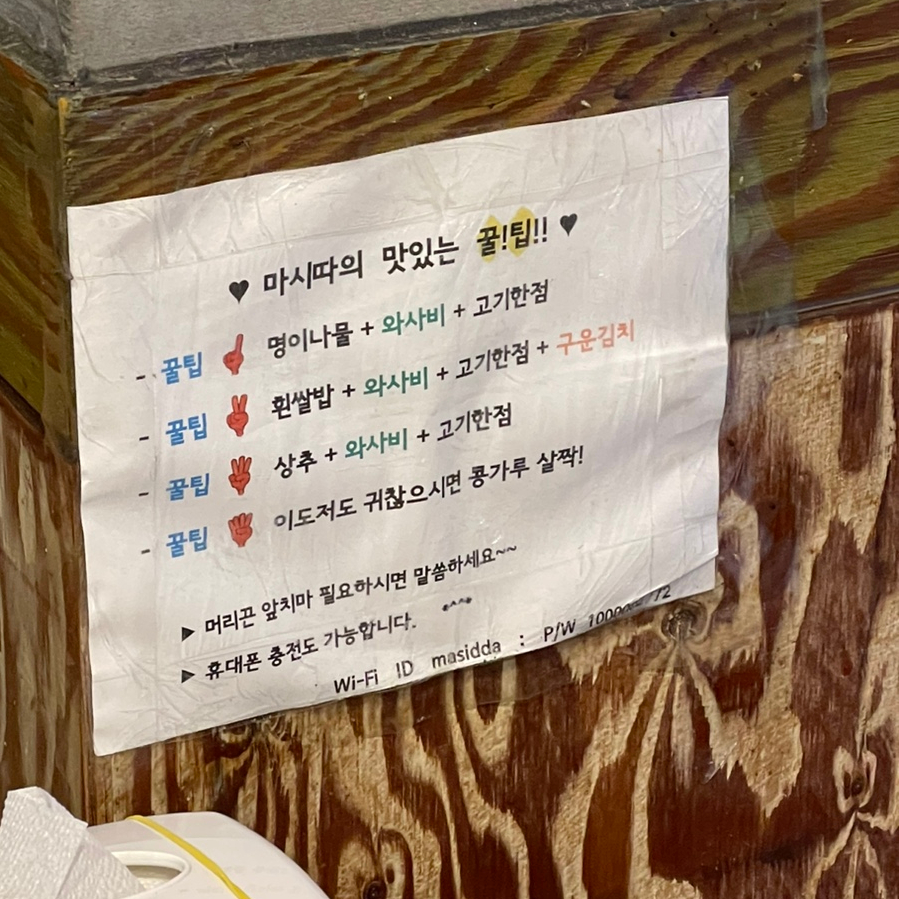 ♥ 마시따의 맛있는 꿀!팁!! ♥
- 꿀팁 ☝ 명이나물 + 와사비 + 고기한점
- 꿀팁 흰쌀밥 + 와사비 + 고기한점 + 구운김치
- 꿀팁 상추 + 와사비 + 고기한점
- 꿀팁 이도저도 귀찮으시면 콩가루 살짝!
▶ 머리끈 앞치마 필요하시면 말씀하세요~~
▶ 휴대폰 충전도 가능합니다. *^^*
Wi-Fi ID masidda : P/W